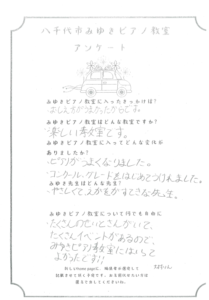 八千代市みゆきピアノ教室
アンケート
みゆきピアノ教室に入ったきっかけは?
みゆきピアノ教室はどんな教室ですか?
楽しい教室です。
みゆきピアノ教室に入ってどんな変化が
ありましたか?
ピアノがうまくなりました。
コンクール、グレードをはじめてうけれました。
みゆき先生はどんな先生?
やさしくて
すてきな先生。
みゆきピアノ教室について何でも自由に
たくさんのせいとさんがいて、
たくさんイベントがあるので、
みゆきピアノ教室にはいって
よかったです!!